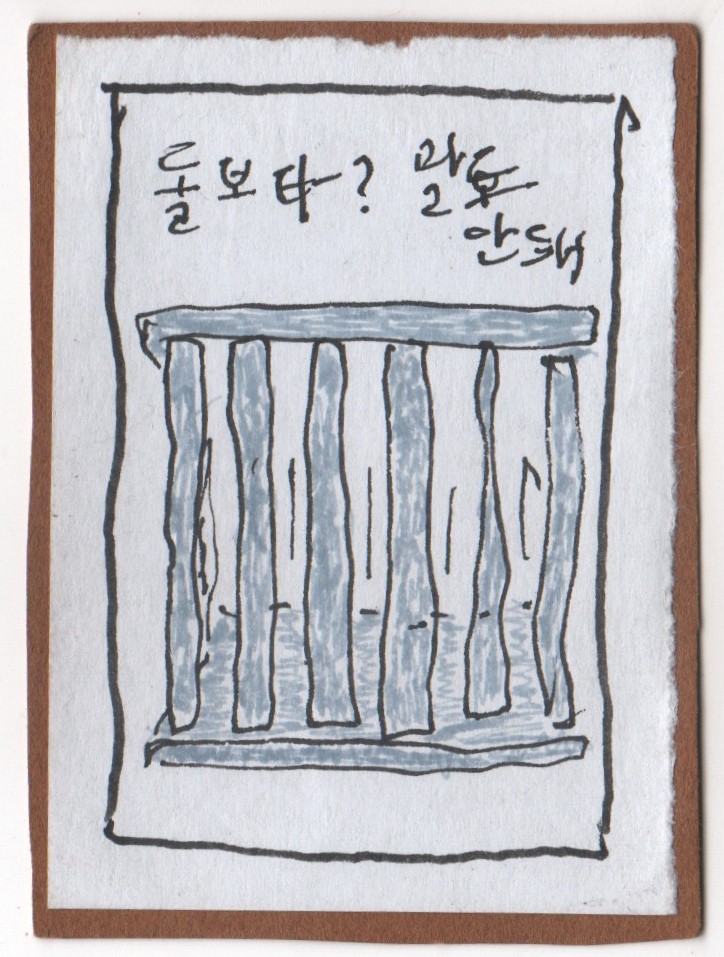 돌보다? 말도
안돼